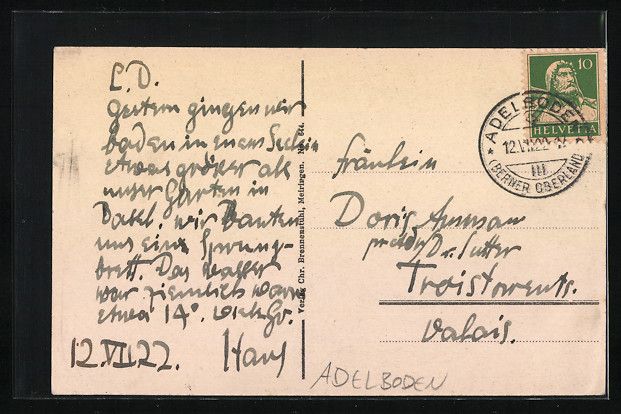 L. D.
Gestern gingen wir
baden in einem Seelein
etwas größer als
unser Garten in
Basel. Wir bauten
uns ein Sprung-
brett. Das Wasser
war ziemlich warm
etwa 14°. Viele Gr.
12.VII.22. Hans
Verlag Chr. Brennenstuhl, Meiringen. No.
Fräulein
Doris
Dr. Sutter
Troistorrents.
Valais.
ADELBODEN
10
HELVETIA
ADELBODEN
12.VII.22
III
(BERNER OBERLAND)